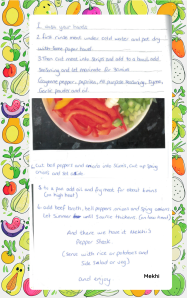 1. wash your hands
2. first rinse meat under cold water and pat dry
with paper towel
3. then cut meat into strips and add to a bowl, add
seasoning and let marinate for 30 mins
(cayenne pepper, paprika, all purpose seasoning, thyme,
Garlic powder and oil
4. cut bell peppers and onions into slices, cut up spicy
onion and set aside
5. In a pan add oil and fry meat for about 6 mins
(on high heat)
6. add beef broth, bell peppers onions and spicy onions
let simmer until sauce thickens (on low heat)
And there we have it Mekhi's
Pepper Steak
(serve with rice or potatoes and
side salad or veg)
And enjoy
Mekhi